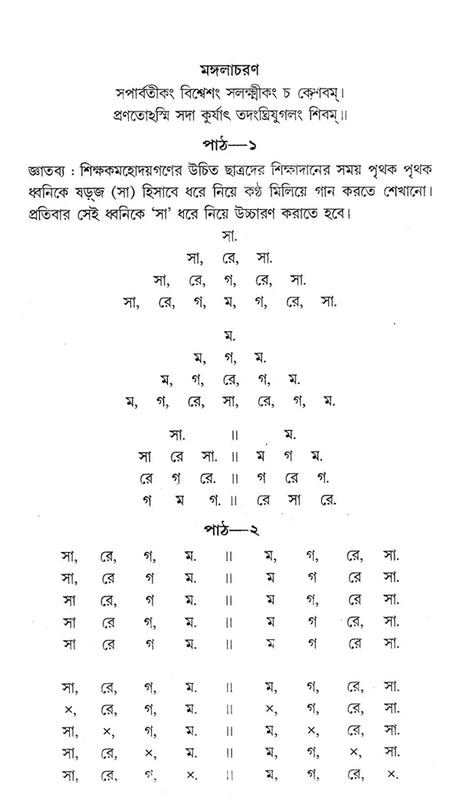 মঙ্গলাচরণ
সপার্বতীকং বিশ্বেশং সলক্ষ্মীকং চ কেশবম্।
প্রণতোঽস্মি সদা কুর্যাৎ তদংঘ্রিযুগলং শিবম্॥
পাঠ—১
জ্ঞাতব্য : শিক্ষকমহোদয়গণের উচিত ছাত্রদের শিক্ষাদানের সময় পৃথক পৃথক
ধ্বনিকে ষড়্জ (সা) হিসাবে ধরে নিয়ে কণ্ঠ মিলিয়ে গান করতে শেখানো।
প্রতিবার সেই ধ্বনিকে ‘সা’ ধরে নিয়ে উচ্চারণ করাতে হবে।
সা.
সা, রে, সা.
সা, রে, গ, রে, সা.
সা, রে, গ, ম, গ, রে, সা.
ম.
ম, গ, ম.
ম, গ, রে, গ, ম.
ম, গ, রে, সা, রে, গ, ম.
সা. ॥ ম.
সা রে সা. ॥ ম গ ম.
রে গ রে. ॥ গ রে গ.
গ ম গ. ॥ রে সা রে.
পাঠ—২
সা, রে, গ, ম. ॥ ম, গ, রে, সা.
সা, রে গ ম. ॥ ম গ রে সা.
সা রে, গ ম. ॥ ম গ, রে সা.
সা রে গ, ম. ॥ ম গ রে, সা.
সা রে গ ম. ॥ ম গ রে সা.
সা, রে, গ, ম. ॥ ম, গ, রে, সা.
×, রে, গ, ম. ॥ ×, গ, রে, সা.
সা, ×, গ, ম. ॥ ম, ×, রে, সা.
সা, রে, ×, ম. ॥ ম, গ, ×, সা.
সা, রে, গ, ×. ॥ ম, গ, রে, ×.